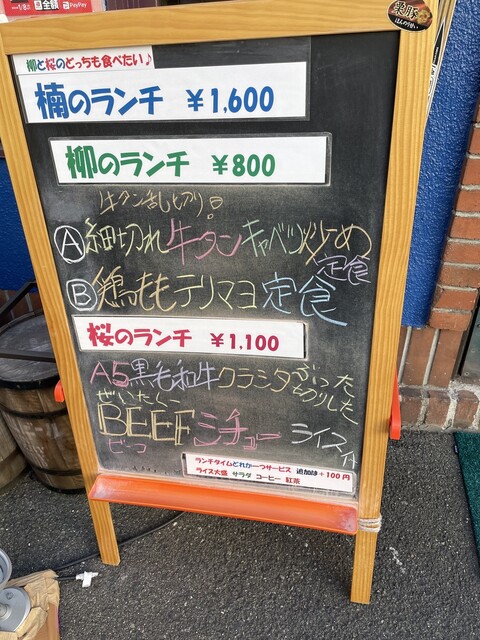 全額 PayPay
栗豚
ほんのりあまい
柳と桜のどっちも食べたい♪
楠のランチ ¥1,600
柳のランチ ¥800
牛タン乱切り!
Ⓐ細切れ牛タンキャベツ炒め
定食
Ⓑ鶏ももテリマヨ定食
桜のランチ ¥1,100
A5黒毛和牛クラシタぶった
切りした
ぜいたくー
BEEFシチュー ライス付
ビーフ
ランチタイムどれか一つサービス 追加は+100円
ライス大盛 サラダ コーヒー 紅茶